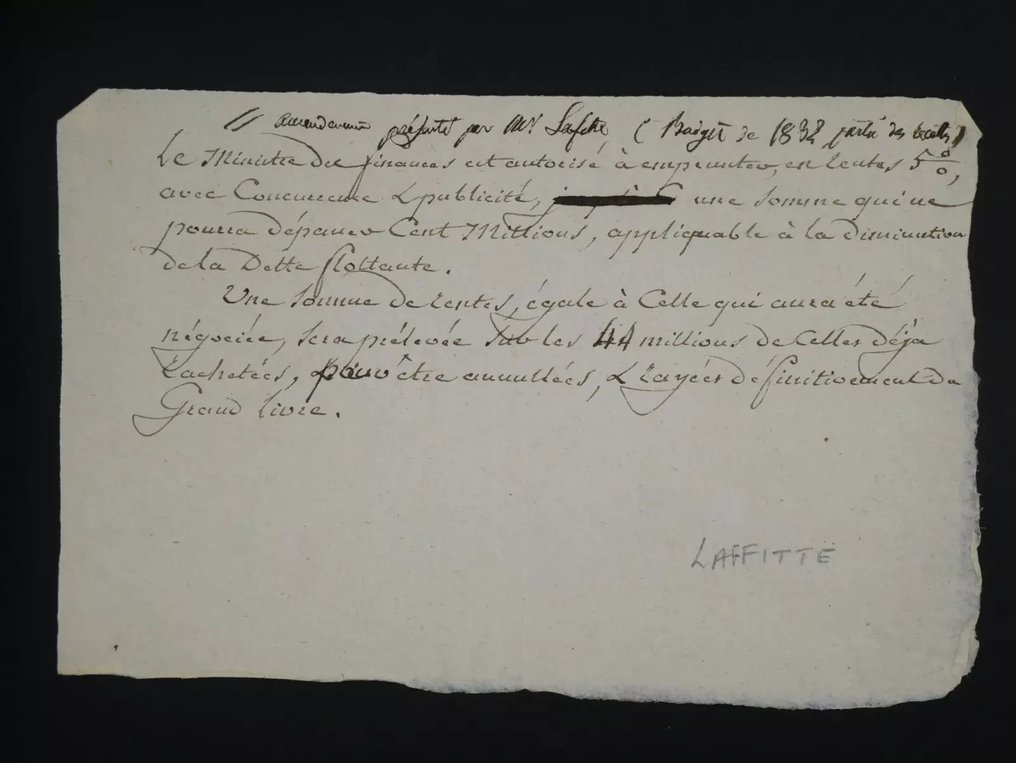 // amendement présenté par Mr Lafitte, ( Budget de 1832 partie des recettes )
Le Ministre des finances est autorisé à emprunter, en rentes 5 %,
avec Concurrence & publicité, une somme qui ne
pourra dépasser Cent Millions, appliquable à la diminution
de la Dette flottante.
Une somme de rentes, égale à Celle qui aura été
négociée, sera prélevée sur les 44 millions de Celles déja
rachetées, pour être annullées, & rayées définitivement du
Grand livre.
LAFFITTE